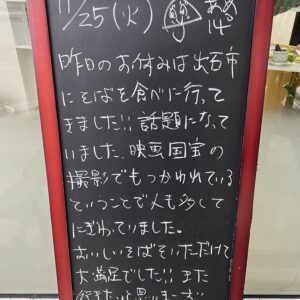 11/25(火) あめ 14
昨日のお休みは出石市
にそばを食べに行って
きました!! 話題になって
いました、映画国宝の
撮影でもつかわれている
ということで人も多くして
にぎわっていました。
おいしいそばをいただけて
大満足でした!! また
行きたいと思います